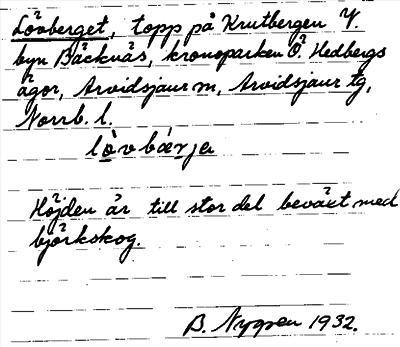 Lövberget, topp på Krutbergen V.
byn Bäcknäs, kronoparken Ö. Hedbergs
ägor, Arvidsjaur m, Arvidsjaur tg,
Norrb. l.
lòvbærja
Höjden är till stor del beväxt med
björkskog.
B. Nygren 1932.